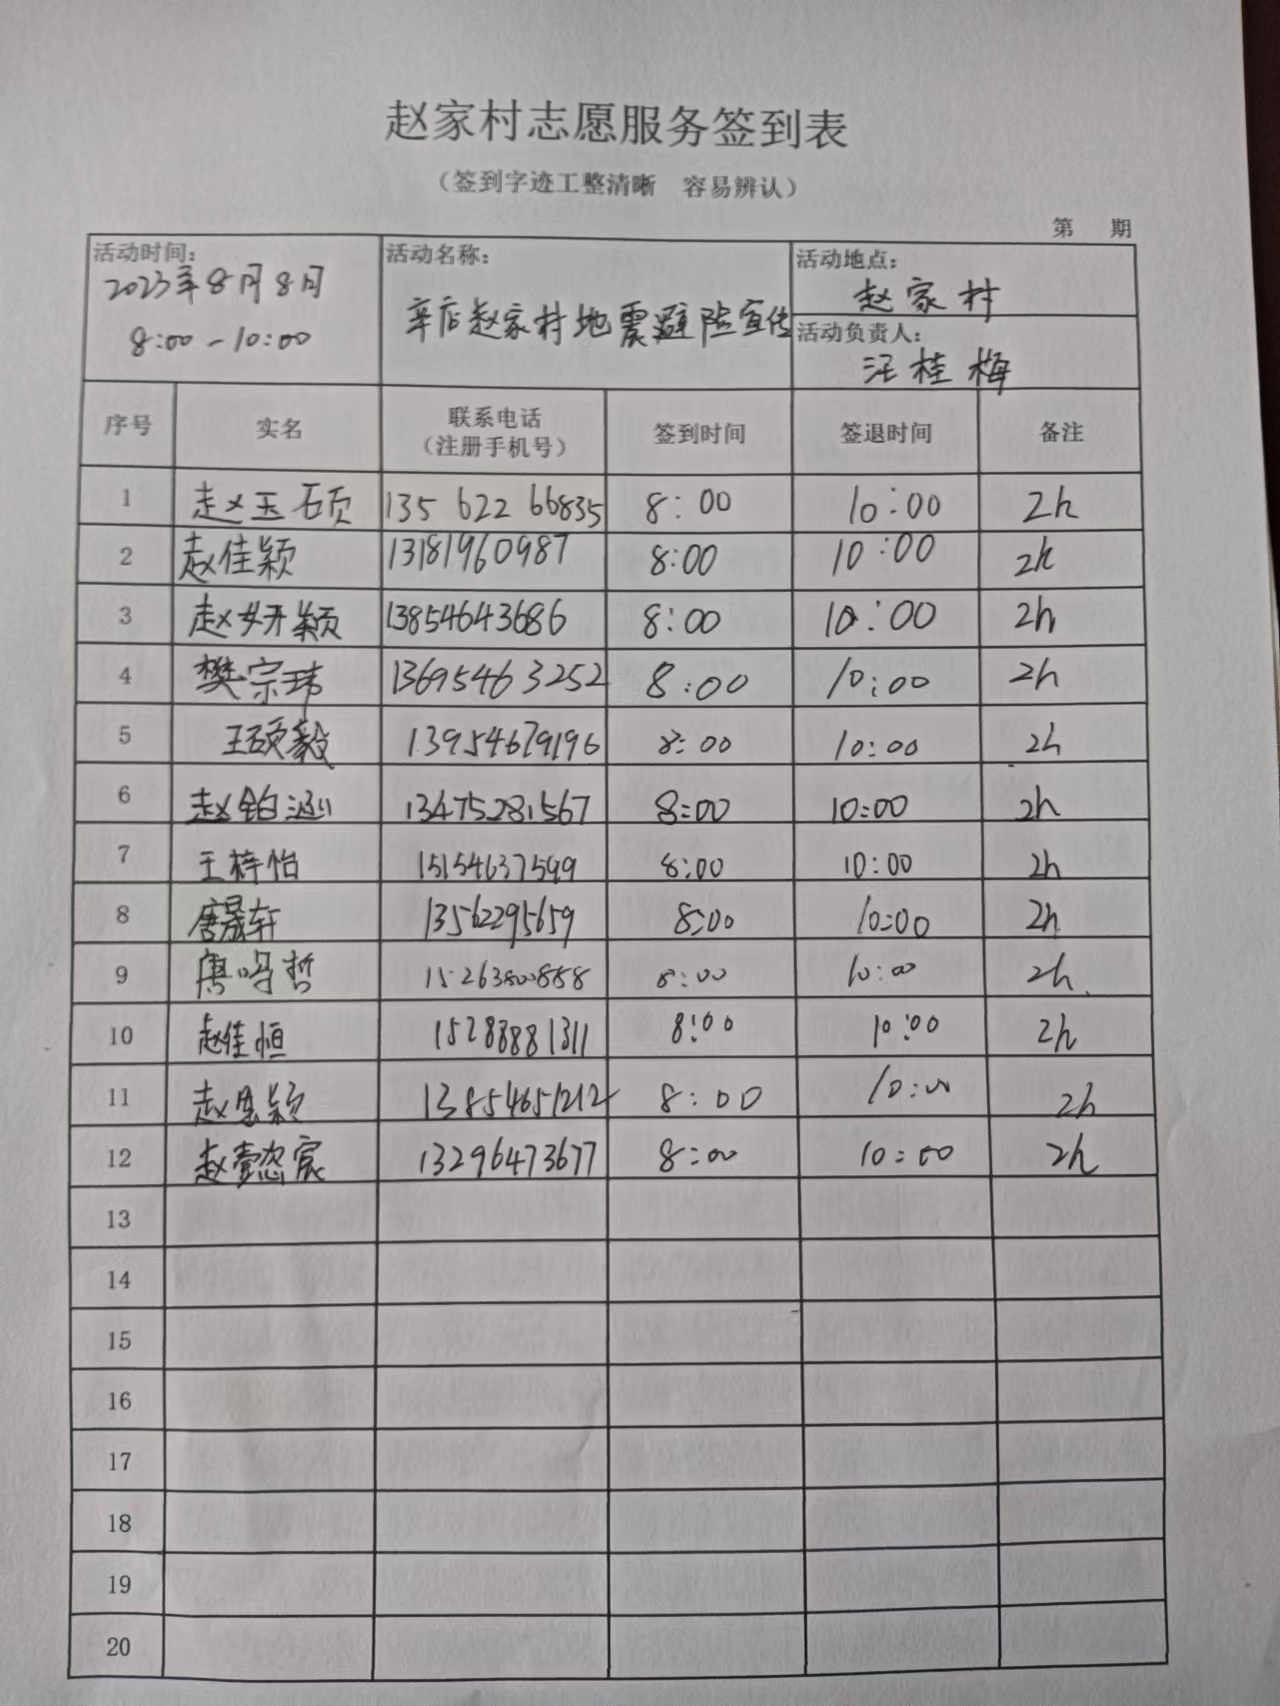 赵家村志愿服务签到表
（签到字迹工整清晰　容易辨认）
第　期
活动时间：
2023年8月8日
8:00-10:00
活动名称：
辛店赵家村地震避险宣传
活动地点：
赵家村
活动负责人：
汪桂梅
序号 实名 联系电话（注册手机号） 签到时间 签退时间 备注
1 赵玉硕 135 622 66835 8:00 10:00 2h
2 赵佳颖 13181960987 8:00 10:00 2h
3 赵妍颖 13854643686 8:00 10:00 2h
4 樊宗玮 13695463252 8:00 10:00 2h
5 王硕毅 13954679196 8:00 10:00 2h
6 赵铂 13475281567 8:00 10:00 2h
7 王梓怡 15154637599 8:00 10:00 2h
8 唐晟轩 13562295659 8:00 10:00 2h
9 唐鸣哲 15263800858 8:00 10:00 2h
10 赵佳恒 15288881311 8:00 10:00 2h
11 赵思颖 13854651212 8:00 10:00 2h
12 赵懿宸 13296473677 8:00 10:00 2h
13
14
15
16
17
18
19
20